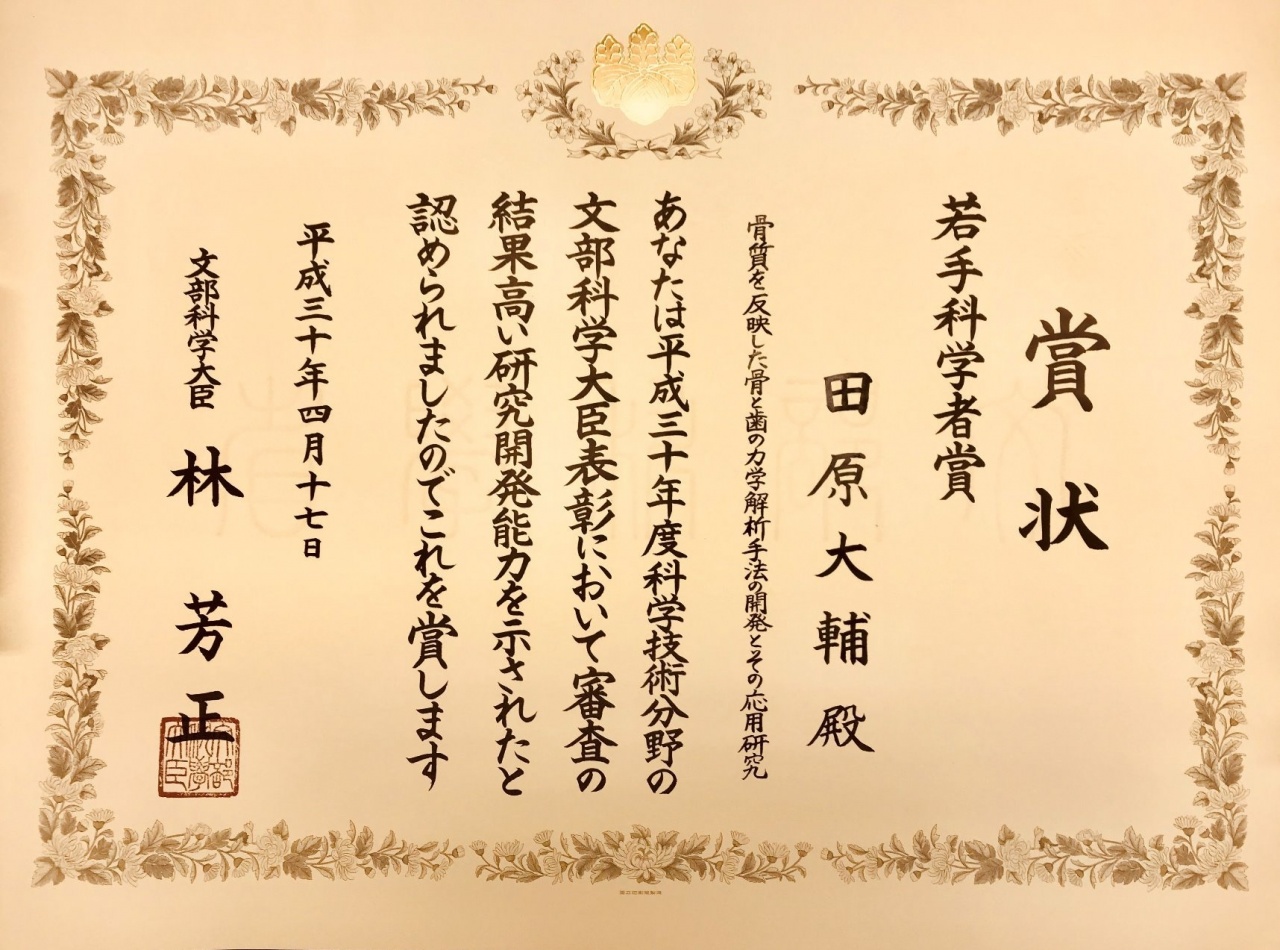 賞状
若手科学者賞
田原大輔殿
骨質を反映した骨と歯の力学解析手法の開発とその応用研究
あなたは平成三十年度科学技術分野の
文部科学大臣表彰において審査の
結果高い研究開発能力を示されたと
認められましたのでこれを賞します
平成三十年四月十七日
文部科学大臣 林 芳正